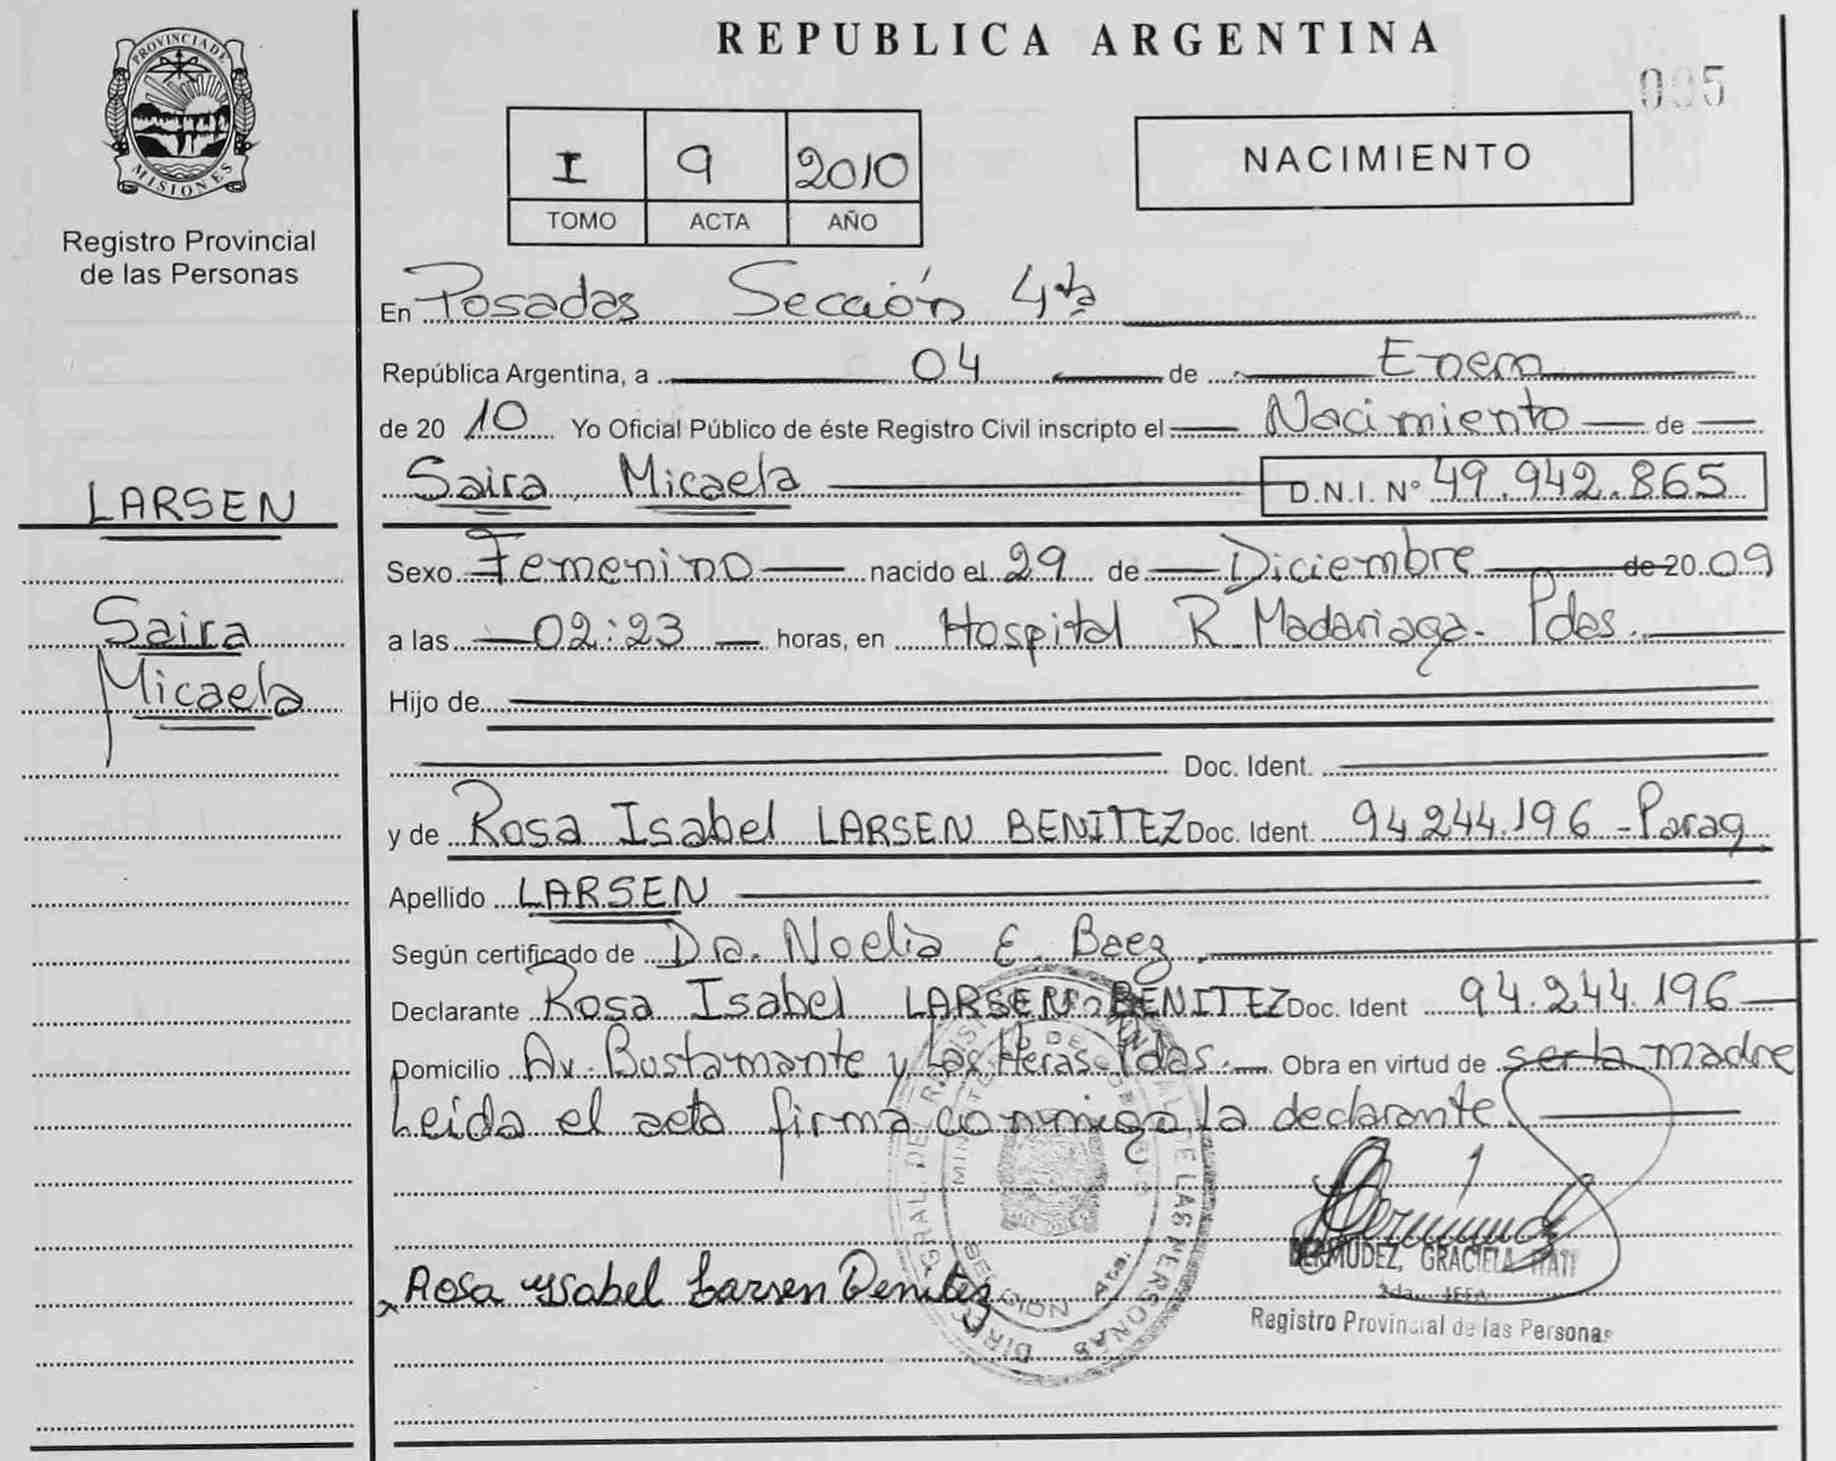 REPUBLICA ARGENTINA
PROVINCIA DE
MISIONES
Registro Provincial
de las Personas
005
I 9 2010
TOMO ACTA AÑO
NACIMIENTO
En Posadas Sección 4ta
República Argentina, a 04 de Enero
de 2010 Yo Oficial Público de éste Registro Civil inscripto el Nacimiento de
Saira Micaela D.N.I. Nº 49.942.865
LARSEN
Saira
Micaela
Sexo Femenino nacido el 29 de Diciembre de 2009
a las 02:23 horas, en Hospital R. Madariaga. Pdas.
Hijo de
Doc. Ident.
y de Rosa Isabel LARSEN BENITEZ Doc. Ident. 94.244.196 - Parag.
Apellido LARSEN
Según certificado de Dra. Noelia E. Baez
Declarante Rosa Isabel LARSEN BENITEZ Doc. Ident 94.244.196
Domicilio Av. Bustamante y Las Heras Pdas. Obra en virtud de ser la madre
Leida el acta firma conmigo la declarante.
Rosa Ysabel Larsen Benitez
SECCION 4ta.
BERMUDEZ, GRACIELA ITATI
JEFA
Registro Provincial de las Personas